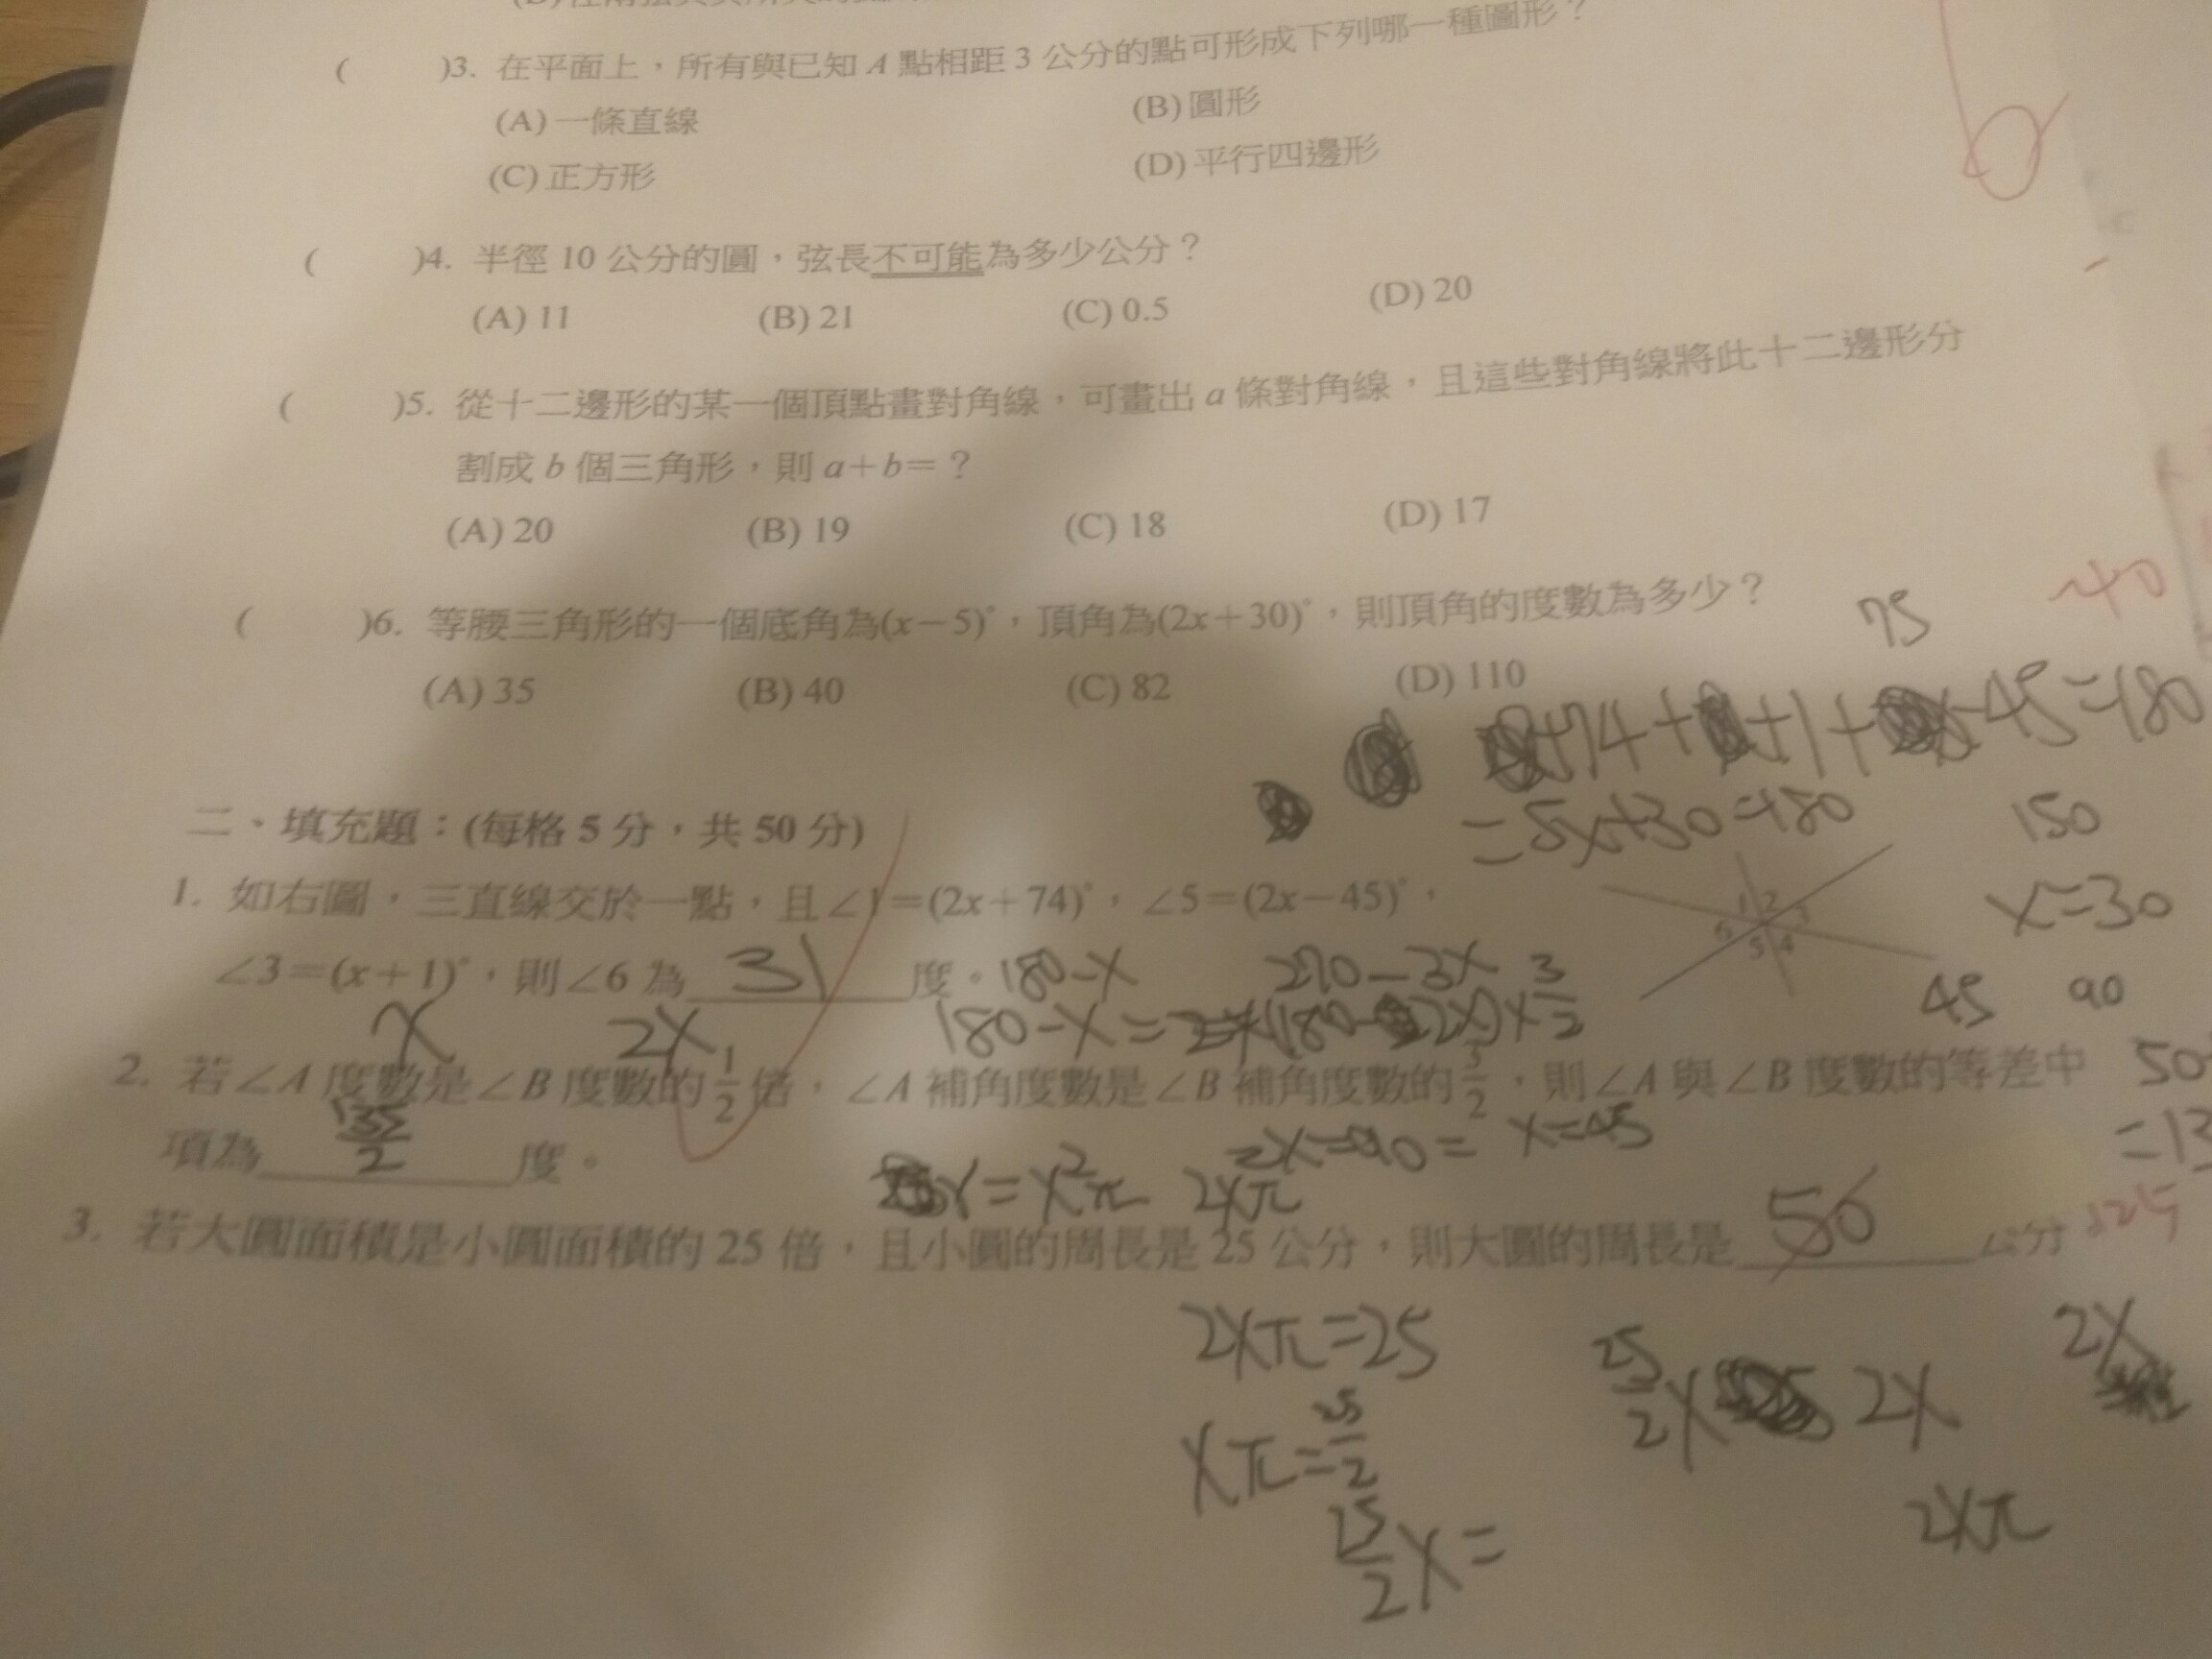 ( )3. 在平面上，所有與已知 A 點相距 3 公分的點可形成下列哪一種圖形？
(A) 一條直線 (B) 圓形
(C) 正方形 (D) 平行四邊形
( )4. 半徑 10 公分的圓，弦長不可能為多少公分？
(A) 11 (B) 21 (C) 0.5 (D) 20
( )5. 從十二邊形的某一個頂點畫對角線，可畫出 a 條對角線，且這些對角線將此十二邊形分
割成 b 個三角形，則 a＋b＝？
(A) 20 (B) 19 (C) 18 (D) 17
( )6. 等腰三角形的一個底角為(x－5)°，頂角為(2x＋30)°，則頂角的度數為多少？
75 -40
(A) 35 (B) 40 (C) 82 (D) 110
+74+ +1+ -45=180
=5x+30=180 150
二、填充題：(每格 5 分，共 50 分)
1. 如右圖，三直線交於一點，且∠1＝(2x＋74)°，∠5＝(2x－45)°，
1 2 3 4 5 6
x=30
∠3＝(x＋1)°，則∠6 為 31 度。
180-x 270-3x
45 90
x 2x 180-x= (180-2x)x 3/2
2. 若∠A 度數是∠B 度數的 1/2 倍，∠A 補角度數是∠B 補角度數的 3/2，則∠A 與∠B 度數的等差中
項為 135/2 度。
2x=90= x=45
x=x²π 2xπ
3. 若大圓面積是小圓面積的 25 倍，且小圓的周長是 25 公分，則大圓的周長是 50 公分 125
2xπ=25 25/2 x 2x 2x
xπ=25/2
2xπ
25/2 x=